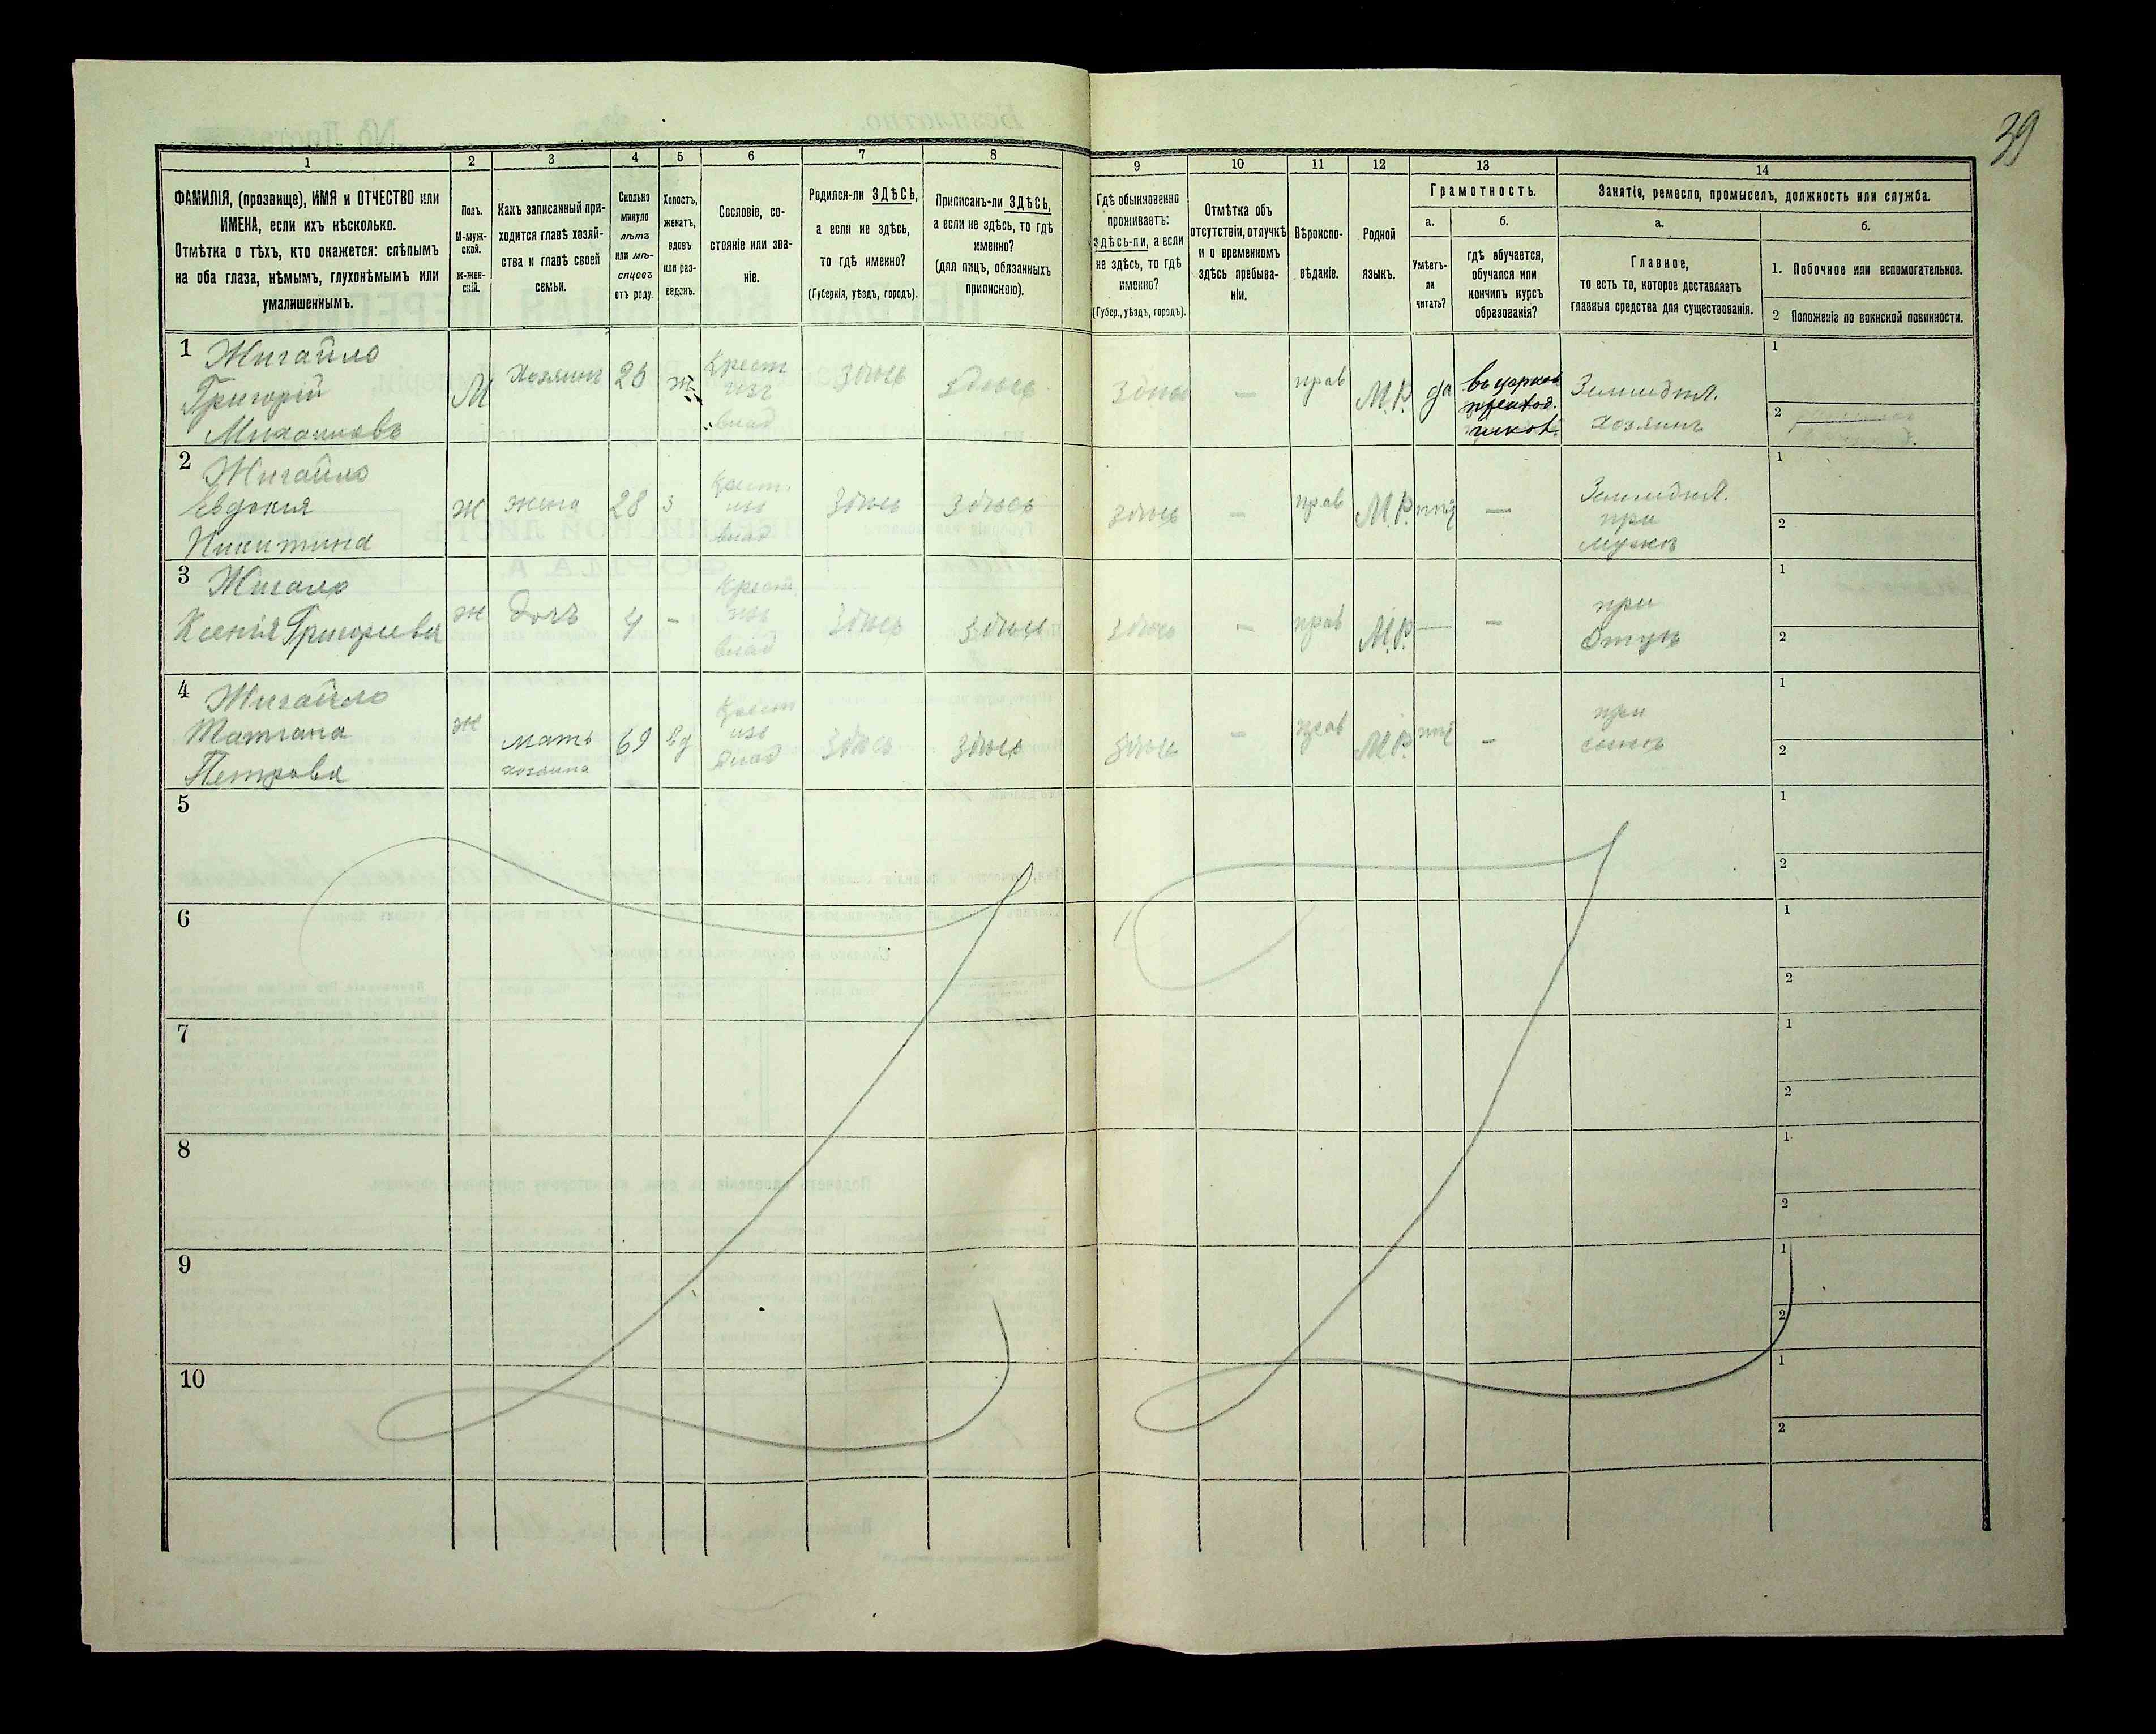 39
1
2
3
4
5
6
7
8
9
10
11
12
13
14
ФАМИЛІЯ, (прозвище), ИМЯ и ОТЧЕСТВО или
ИМЕНА, если ихъ нѣсколько.
Отмѣтка о тѣхъ, кто окажется: слѣпымъ
на оба глаза, нѣмымъ, глухонѣмымъ или
умалишеннымъ.
Полъ.
М-муж-
ской.
ж-жен-
скій.
Какъ записанный при-
ходится главѣ хозяй-
ства и главѣ своей
семьи.
Сколько
минуло
лѣтъ
или мѣ-
сяцевъ
отъ роду.
Холостъ,
женатъ,
вдовъ
или раз-
веденъ.
Сословіе, со-
стояніе или зва-
ніе.
Родился-ли ЗДѢСЬ,
а если не здѣсь,
то гдѣ именно?
(Губернія, уѣздъ, городъ).
Приписанъ-ли ЗДѢСЬ,
а если не здѣсь, то гдѣ
именно?
(для лицъ, обязанныхъ
припискою).
Гдѣ обыкновенно
проживаетъ:
здѣсь-ли, а если
не здѣсь, то гдѣ
именно?
(Губер., уѣздъ, городъ).
Отмѣтка объ
отсутствіи, отлучкѣ
и о временномъ
здѣсь пребыва-
ніи.
Вѣроиспо-
вѣданіе.
Родной
языкъ.
Грамотность.
а.
б.
Умѣетъ-
ли
читать?
гдѣ обучается,
обучался или
кончилъ курсъ
образованія?
Занятіе, ремесло, промыселъ, должность или служба.
а.
б.
Главное,
то есть то, которое доставляетъ
главныя средства для существованія.
1. Побочное или вспомогательное.
2 Положеніе по воинской повинности.
1 Жигайло
Григорій
Михаиловъ
М
Хозяинъ
26
ж
Крест
изъ
влад
Здѣсь
здѣсь
здѣсь
—
прав
М.Р.
да
въ церков
приход.
школ.
Земледѣл.
хозяинъ
1
2
2 Жигайло
Евдокия
Никитина
ж
жена
28
з
Крест.
изъ
влад
Здѣсь
Здѣсь
здѣсь
—
прав
М.Р.
нѣт
—
Земледѣл.
при
мужѣ
1
2
3 Жигало
Ксенія Григорьева
ж
дочь
4
-
Крест
изъ
влад
здѣсь
здѣсь
здѣсь
—
прав
М.Р.
—
—
при
отцѣ
1
2
4 Жигайло
Татiана
Петрова
ж
мать
хозяина
69
вд
Крест
изъ
влад
Здѣсь
здѣсь
здѣсь
—
прав
М.Р.
нѣт
—
при
сынѣ
1
2
5
1
2
6
1
2
7
1
2
8
1
2
9
1
2
10
1
2